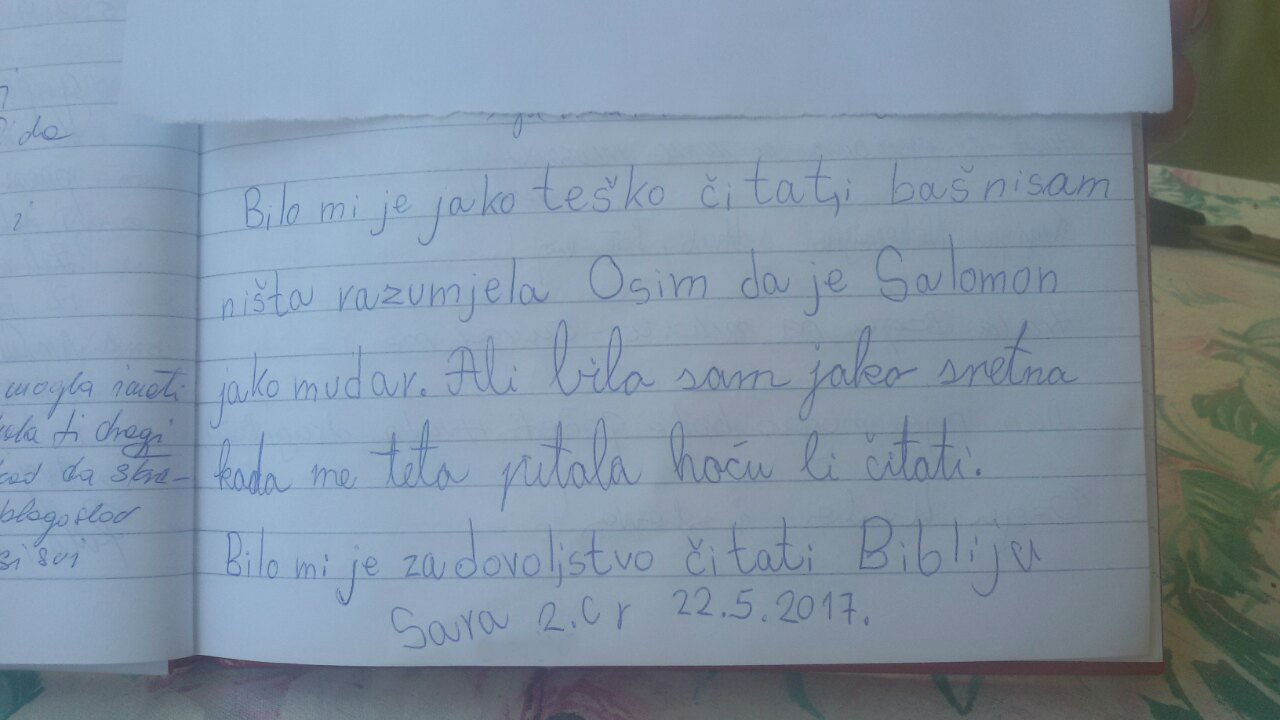 da
i
mogla imati
ti dragi
da
blagoslov
si svi
Bilo mi je jako teško čitat,i baš nisam
ništa razumjela Osim da je Salomon
jako mudar. Ali bila sam jako sretna
kada me teta pitala hoću li čitati.
Bilo mi je zadovoljstvo čitati Bibliju
Sara 2.C r 22.5.2017.